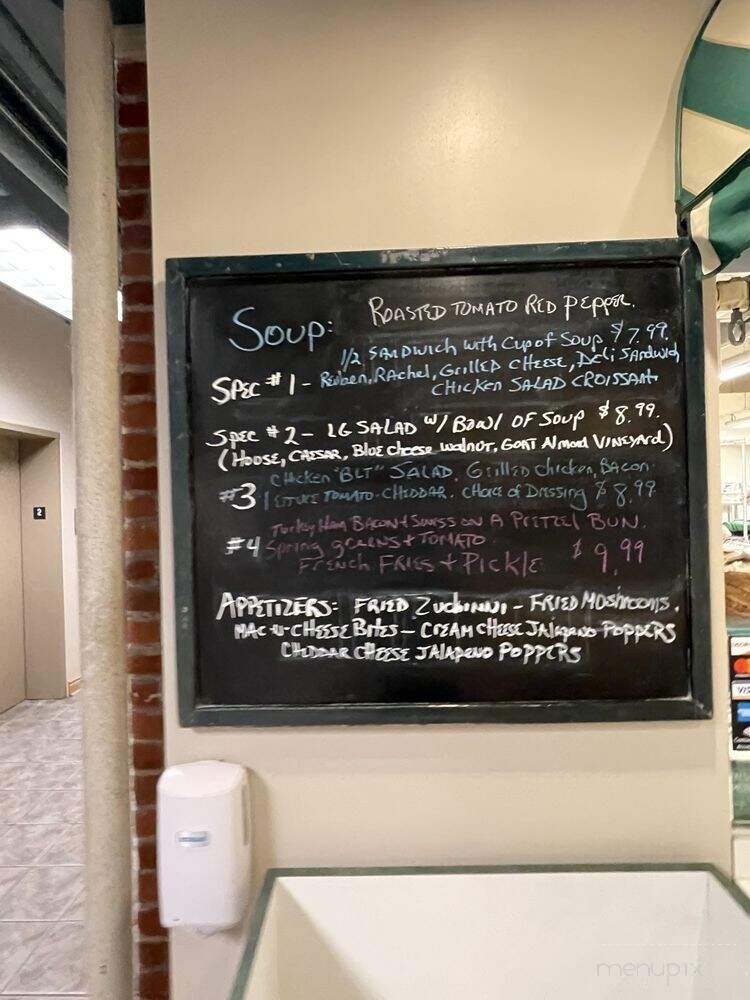 Roasted Tomato Red Pepper.
Soup:
1/2 Sandwich with Cup of Soup $7.99.
Spec #1 - Reuben, Rachel, Grilled Cheese, Deli Sandwich
Chicken Salad Croissant
Spec #2 - LG Salad w/ Bowl of Soup $8.99.
(House, Caesar, Blue cheese walnut, Goat Almond Vineyard)
Chicken "BLT" Salad. Grilled chicken, Bacon
#3 Lettuce Tomato. Cheddar. Choice of Dressing $8.99
Turkey Ham Bacon + Swiss on a Pretzel Bun.
#4 Spring greens + Tomato
French Fries + Pickle $9.99
Appetizers: Fried Zuchinni - Fried Moshrooms.
Mac-n-Cheese Bites - Cream Cheese Jalapeno Poppers
Cheddar Cheese Jalapeno Poppers
2
VISA
menupix